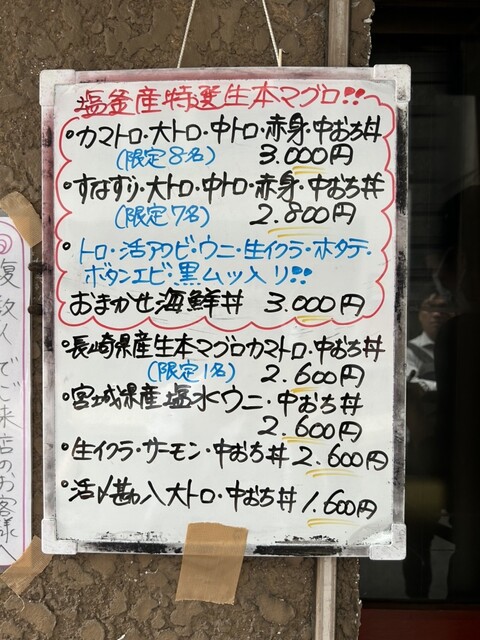 塩釜産特選生本マグロ!!
・カマトロ・大トロ・中トロ・赤身・中おち丼
(限定8名) 3.000円
・すなずり・大トロ・中トロ・赤身・中おち丼
(限定7名) 2.800円
・トロ・活アワビ・ウニ・生イクラ・ホタテ・
ボタンエビ・黒ムツ入り!!
おまかせ海鮮丼 3.000円
・長崎県産生本マグロカマトロ・中おち丼
(限定1名) 2.600円
・宮城県産塩水ウニ・中おち丼
2.600円
・生イクラ・サーモン・中おち丼 2.600円
・活〆勘八大トロ・中おち丼 1.600円
でご来店のお客様へ